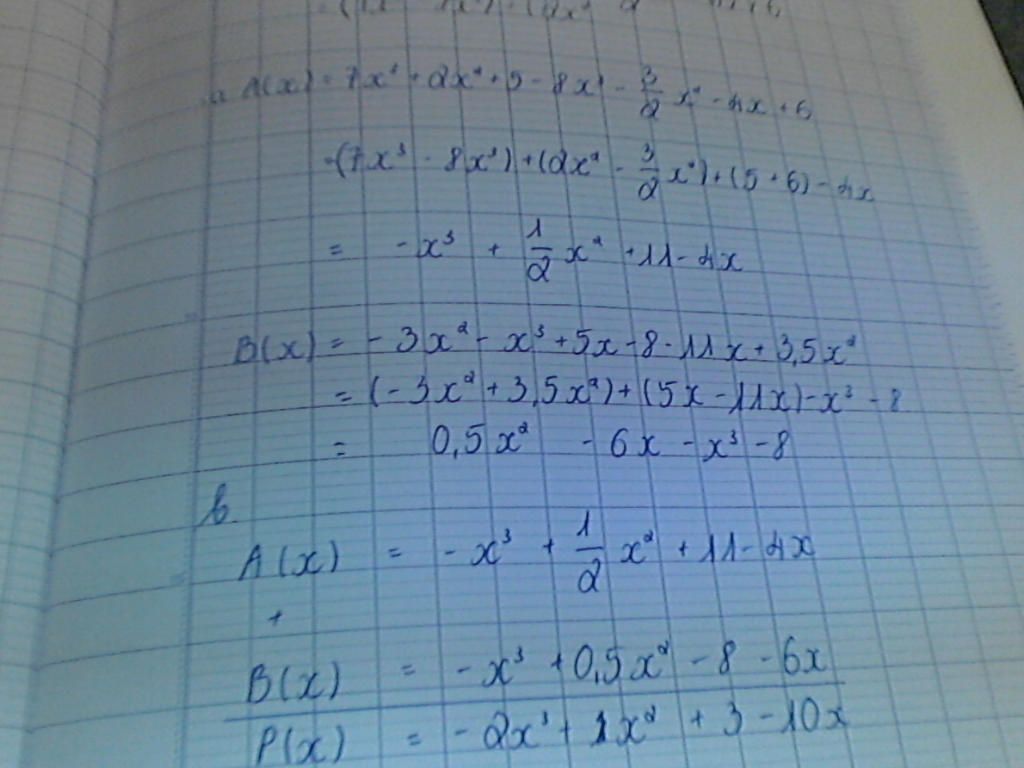 a A(x) = 7x³ + 2x² + 5 - 8x³ - 3/2 x² - 4x + 6
=(7x³ - 8x³) + (2x² - 3/2 x²) + (5 + 6) - 4x
= -x³ + 1/2 x² + 11 - 4x
B(x) = -3x² - x³ + 5x - 8 - 11x + 3,5x²
= (-3x² + 3,5x²) + (5x - 11x) - x³ - 8
= 0,5x² - 6x - x³ - 8
b
A(x) = -x³ + 1/2 x² + 11 - 4x
+
B(x) = -x³ + 0,5x² - 8 - 6x
P(x) = -2x³ + 1x² + 3 - 10x